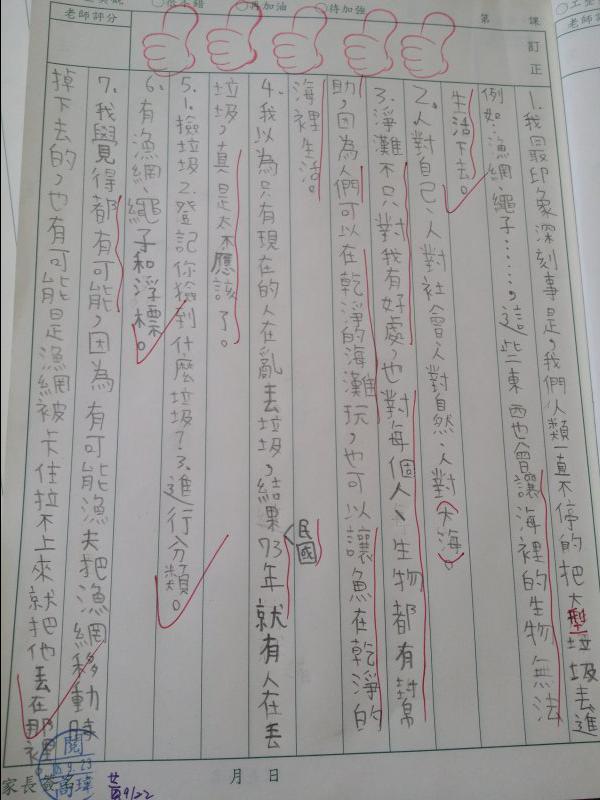 ○再加油
○待加強
第 課
老師評分
訂正
1.我最印象深刻事是，我們人類一直不停的把大型垃圾丟進
例如：漁網、繩子……，這些東西也會讓海裡的生物無法
生活下去。
2.人對自己、人對社會、人對自然、人對大海。
3.淨灘不只對我有好處，也對每個人、生物都有幫
助，因為人們可以在乾淨的海灘玩，也可以讓魚在乾淨的
海裡生活。
4.我以為只有現在的人在亂丟垃圾，結果民國73年就有人在丟
垃圾，真是太不應該了。
5.1.撿垃圾2.登記你撿到什麼垃圾？3.進行分類。
6.有漁網、繩子和浮標。
7.我覺得都有可能，因為有可能漁夫把漁網移動時
掉下去的，也有可能是漁網被卡住拉不上來就把他丟在那裡。
閱
9.23
月 日
家長簽
9/22